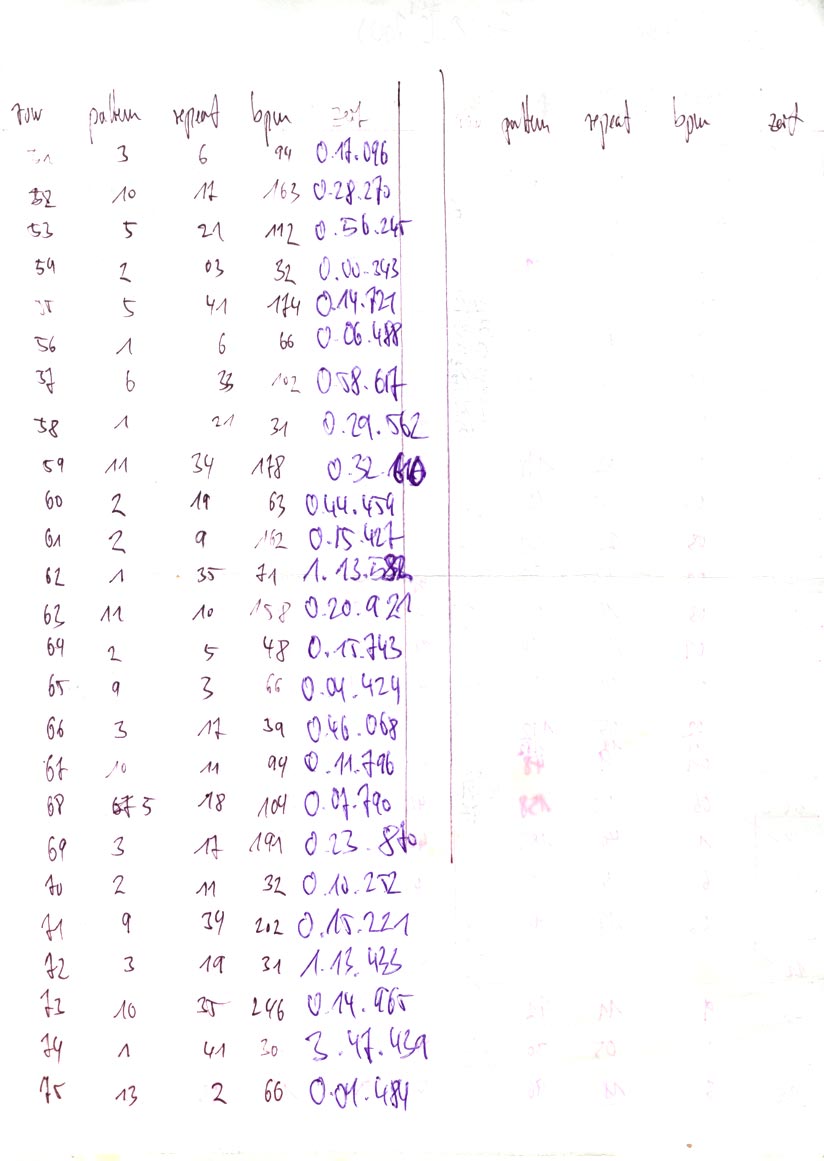 row pattern repeat bpm zeit pattern repeat bpm zeit
51 3 6 94 0.17.096
52 10 17 163 0.28.270
53 5 21 112 0.56.245
54 2 03 32 0.00.343
55 5 41 174 0.14.721
56 1 6 66 0.06.488
57 6 33 102 0.58.617
58 1 21 31 0.29.562
59 11 34 178 0.32.
60 2 19 63 0.44.454
61 2 9 162 0.15.427
62 1 35 71 1.13.582
63 11 10 158 0.20.921
64 2 5 48 0.15.743
65 9 3 66 0.04.424
66 3 17 39 0.46.068
67 10 11 94 0.11.796
68 5 18 104 0.07.790
69 3 17 191 0.23.870
70 2 11 32 0.10.252
71 9 34 202 0.15.221
72 3 19 31 1.13.433
73 10 35 246 0.14.965
74 1 41 30 3.47.439
75 13 2 66 0.01.484